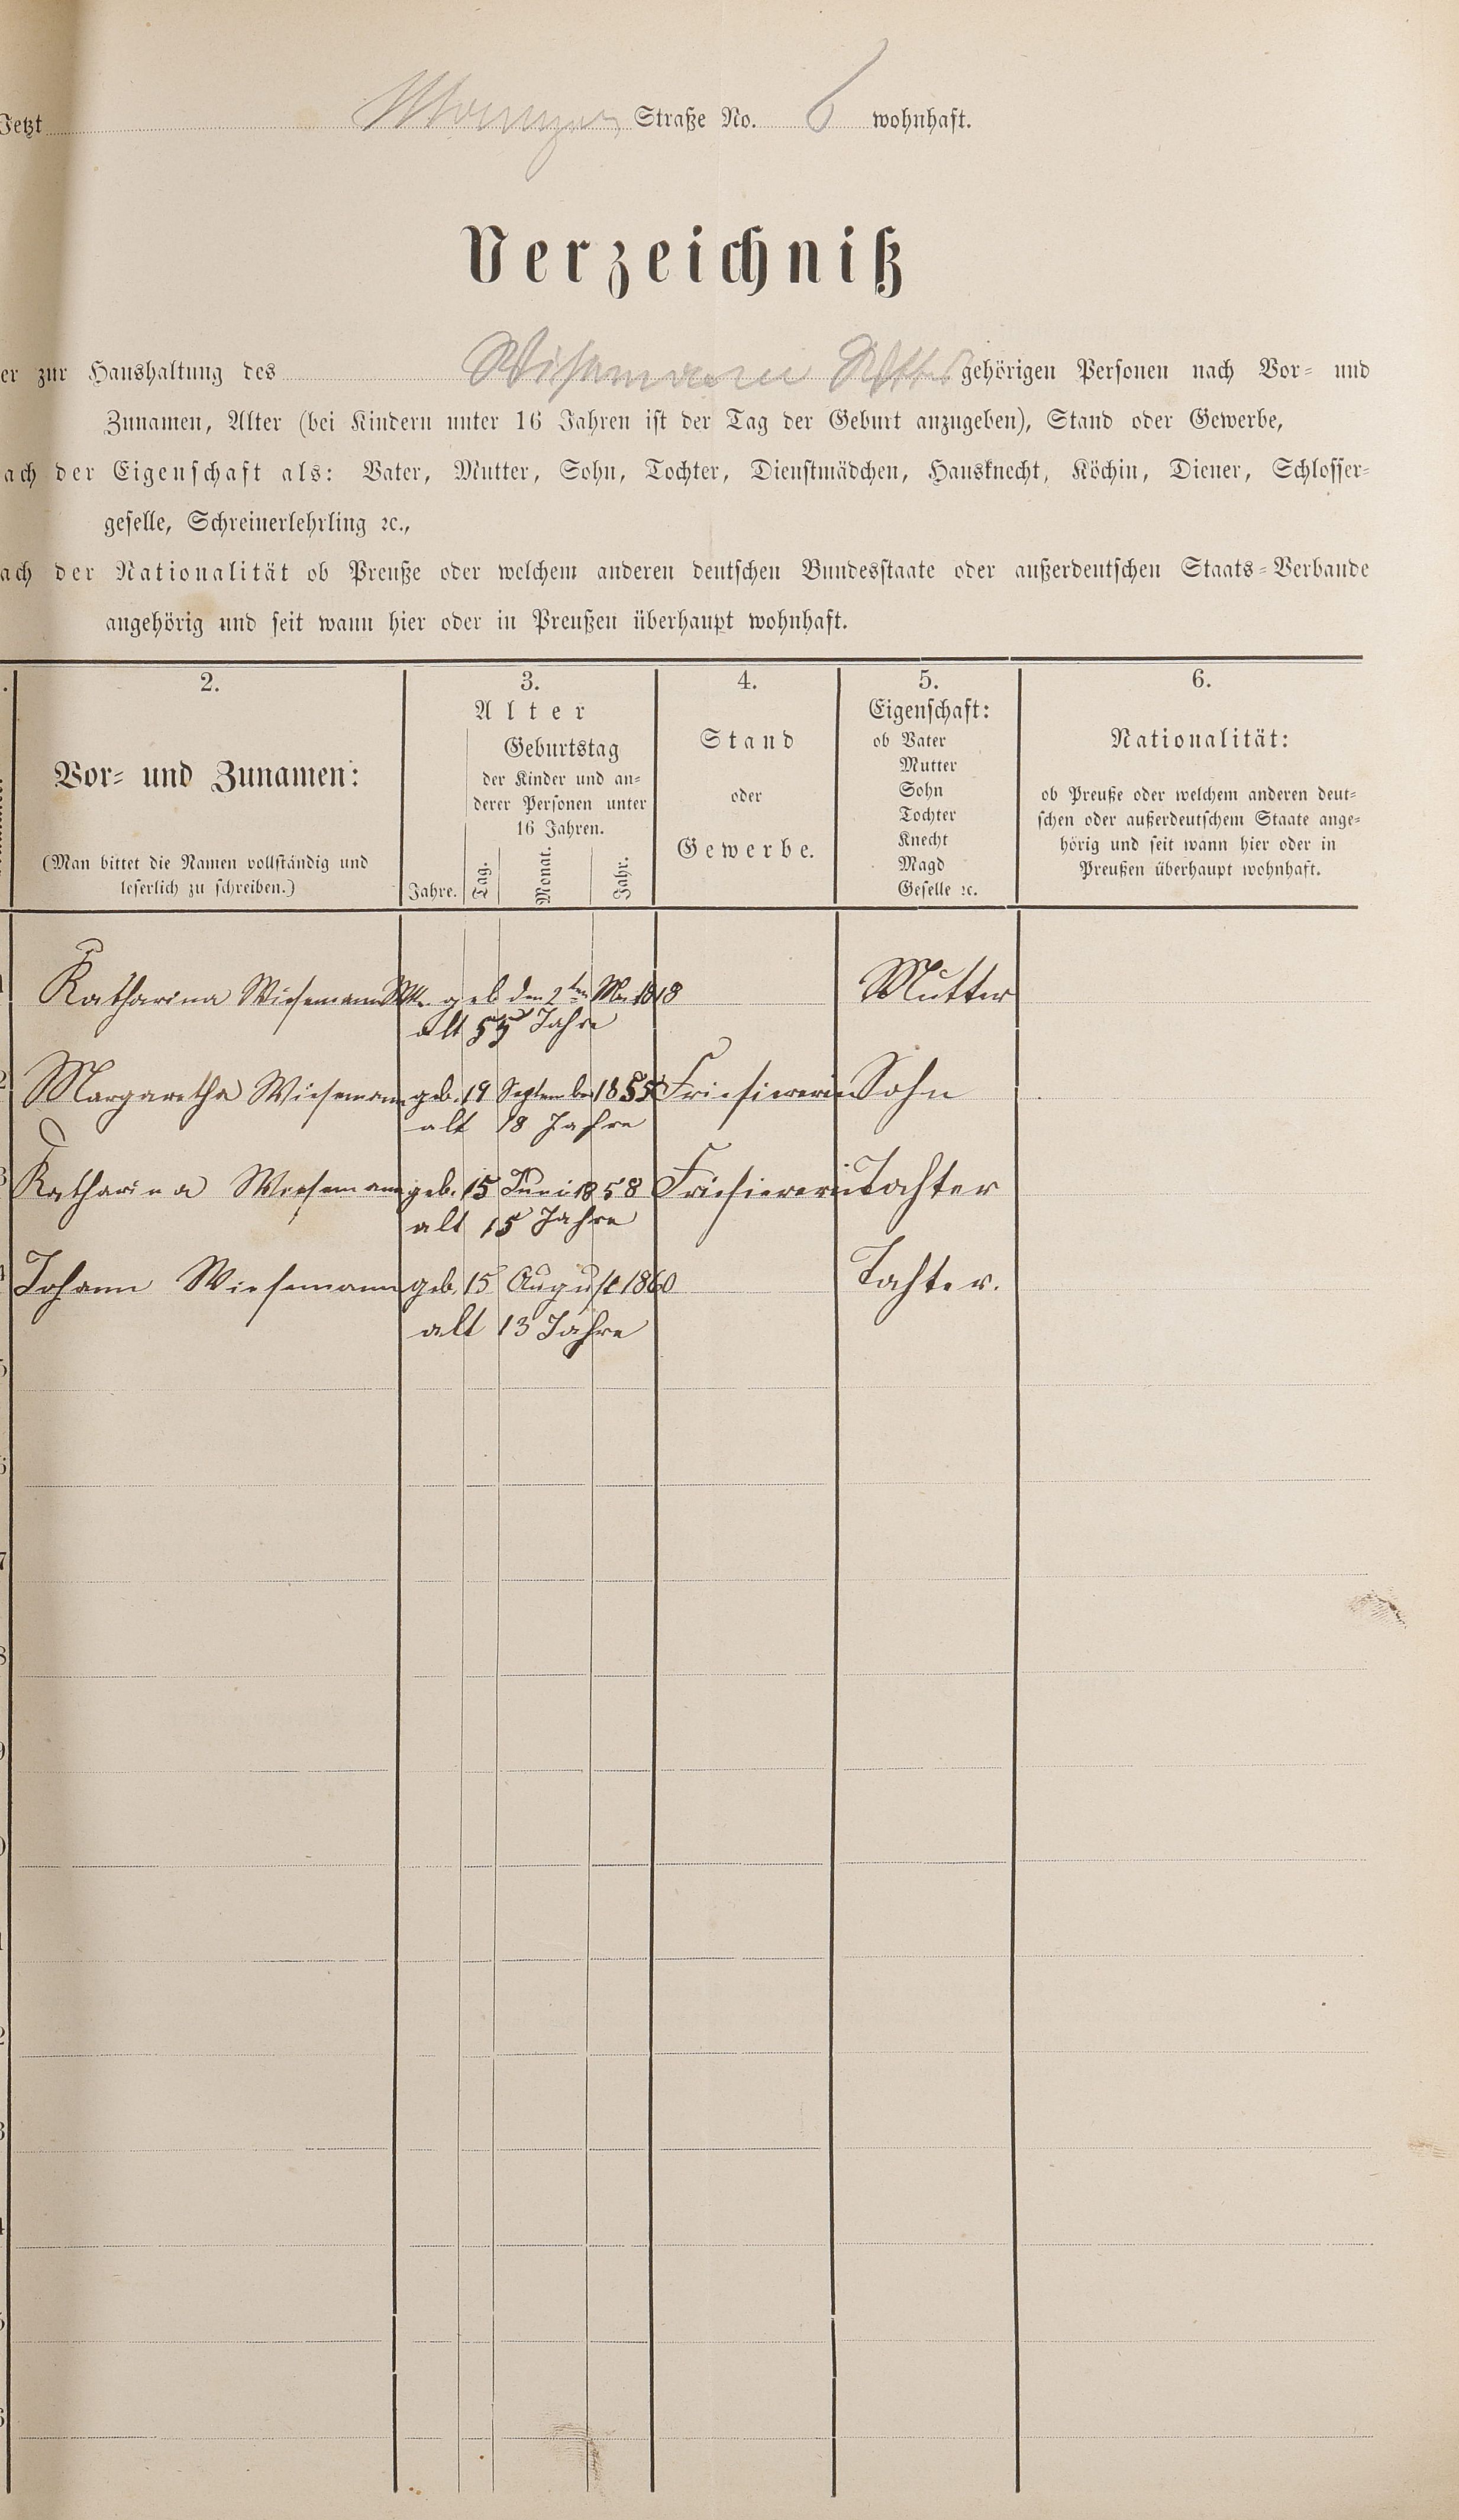 Jetzt Straße No. 6 wohnhaft.
Verzeichniß
er zur Haushaltung des Wisemann gehörigen Personen nach Vor- und
Zunamen, Alter (bei Kindern unter 16 Jahren ist der Tag der Geburt anzugeben), Stand oder Gewerbe,
ach der Eigenschaft als: Vater, Mutter, Sohn, Tochter, Dienstmädchen, Hausknecht, Köchin, Diener, Schlosser-
geselle, Schreinerlehrling ꝛc.,
ach der Nationalität ob Preuße oder welchem anderen deutschen Bundesstaate oder außerdeutschen Staats-Verbande
angehörig und seit wann hier oder in Preußen überhaupt wohnhaft.
2.
Vor- und Zunamen:
(Man bittet die Namen vollständig und
leserlich zu schreiben.)
3.
Alter
Geburtstag
der Kinder und an-
derer Personen unter
16 Jahren.
Jahre. Tag. Monat. Jahr.
4.
Stand
oder
Gewerbe.
5.
Eigenschaft:
ob Vater
Mutter
Sohn
Tochter
Knecht
Magd
Geselle ꝛc.
6.
Nationalität:
ob Preuße oder welchem anderen deut-
schen oder außerdeutschem Staate ange-
hörig und seit wann hier oder in
Preußen überhaupt wohnhaft.
1 Katharina Wiesemann Wtte. geb den 2ten 1818 Mutter
alt 55 Jahre
2 Margaretha Wiesemann geb. 19 September 1855 Friesiererin Sohn
alt 18 Jahre
3 Katharina Wiesemann geb. 15 Juni 1858 Friesiererin Tochter
alt 15 Jahre
4 Johann Wiesemann geb. 15 August 1860 Tahter.
alt 13 Jahre
5
6
7
8
9
0
1
2
3
4
5
6